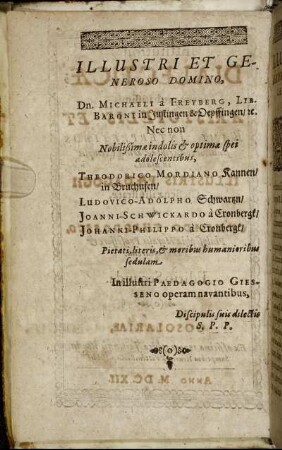 ILLUSTRI ET GE-
NEROSO DOMINO,
DN. MICHAELI à FREYBERG, LIB.
BARONI in Justingen & Oepffingen/ ꝛc.
Nec non
Nobilißimæ indolis & optimæ spei
adolescentibus,
THEODORICO MORDIANO Kannen/
in Bruchusen/
LUDOVICO-ADOLPHO Schwartzn/
JOANNI-SCHWICKARDO à Cronbergk/
JOHANNI-PHILIPPO à Cronbergk/
Pietati, literis, & moribus humanioribus
sedulam
In illustri PAEDAGOGIO GIES-
SENO operam navantibus,
Discipulis suis dilectis
S. P. P.
(o)